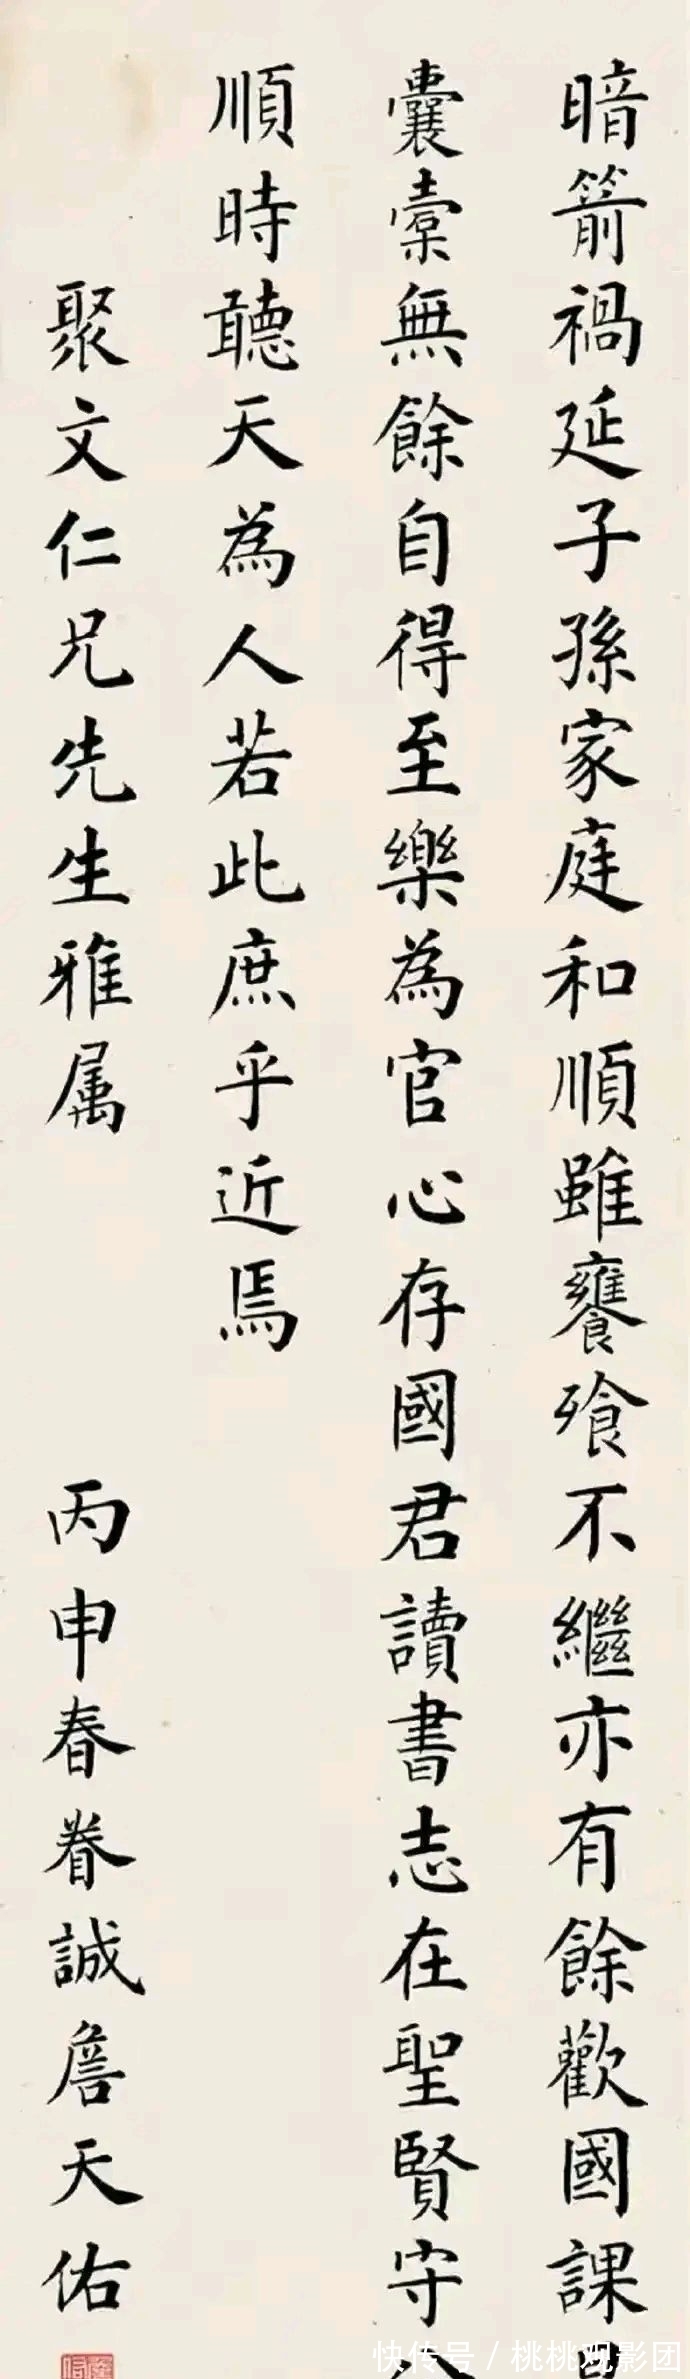 暗箭禍延子孫家庭和順雖饔飱不繼亦有餘歡國課
囊橐無餘自得至樂為官心存國君讀書志在聖賢守
順時聽天為人若此庶乎近焉
聚文仁兄先生雅属
丙申春眷誠詹天佑
快传号 / 桃桃观影团